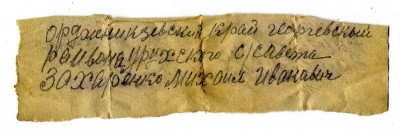 орджоникизевский край георгевский
района урухского с/савета
Захаренко михаил иванавич